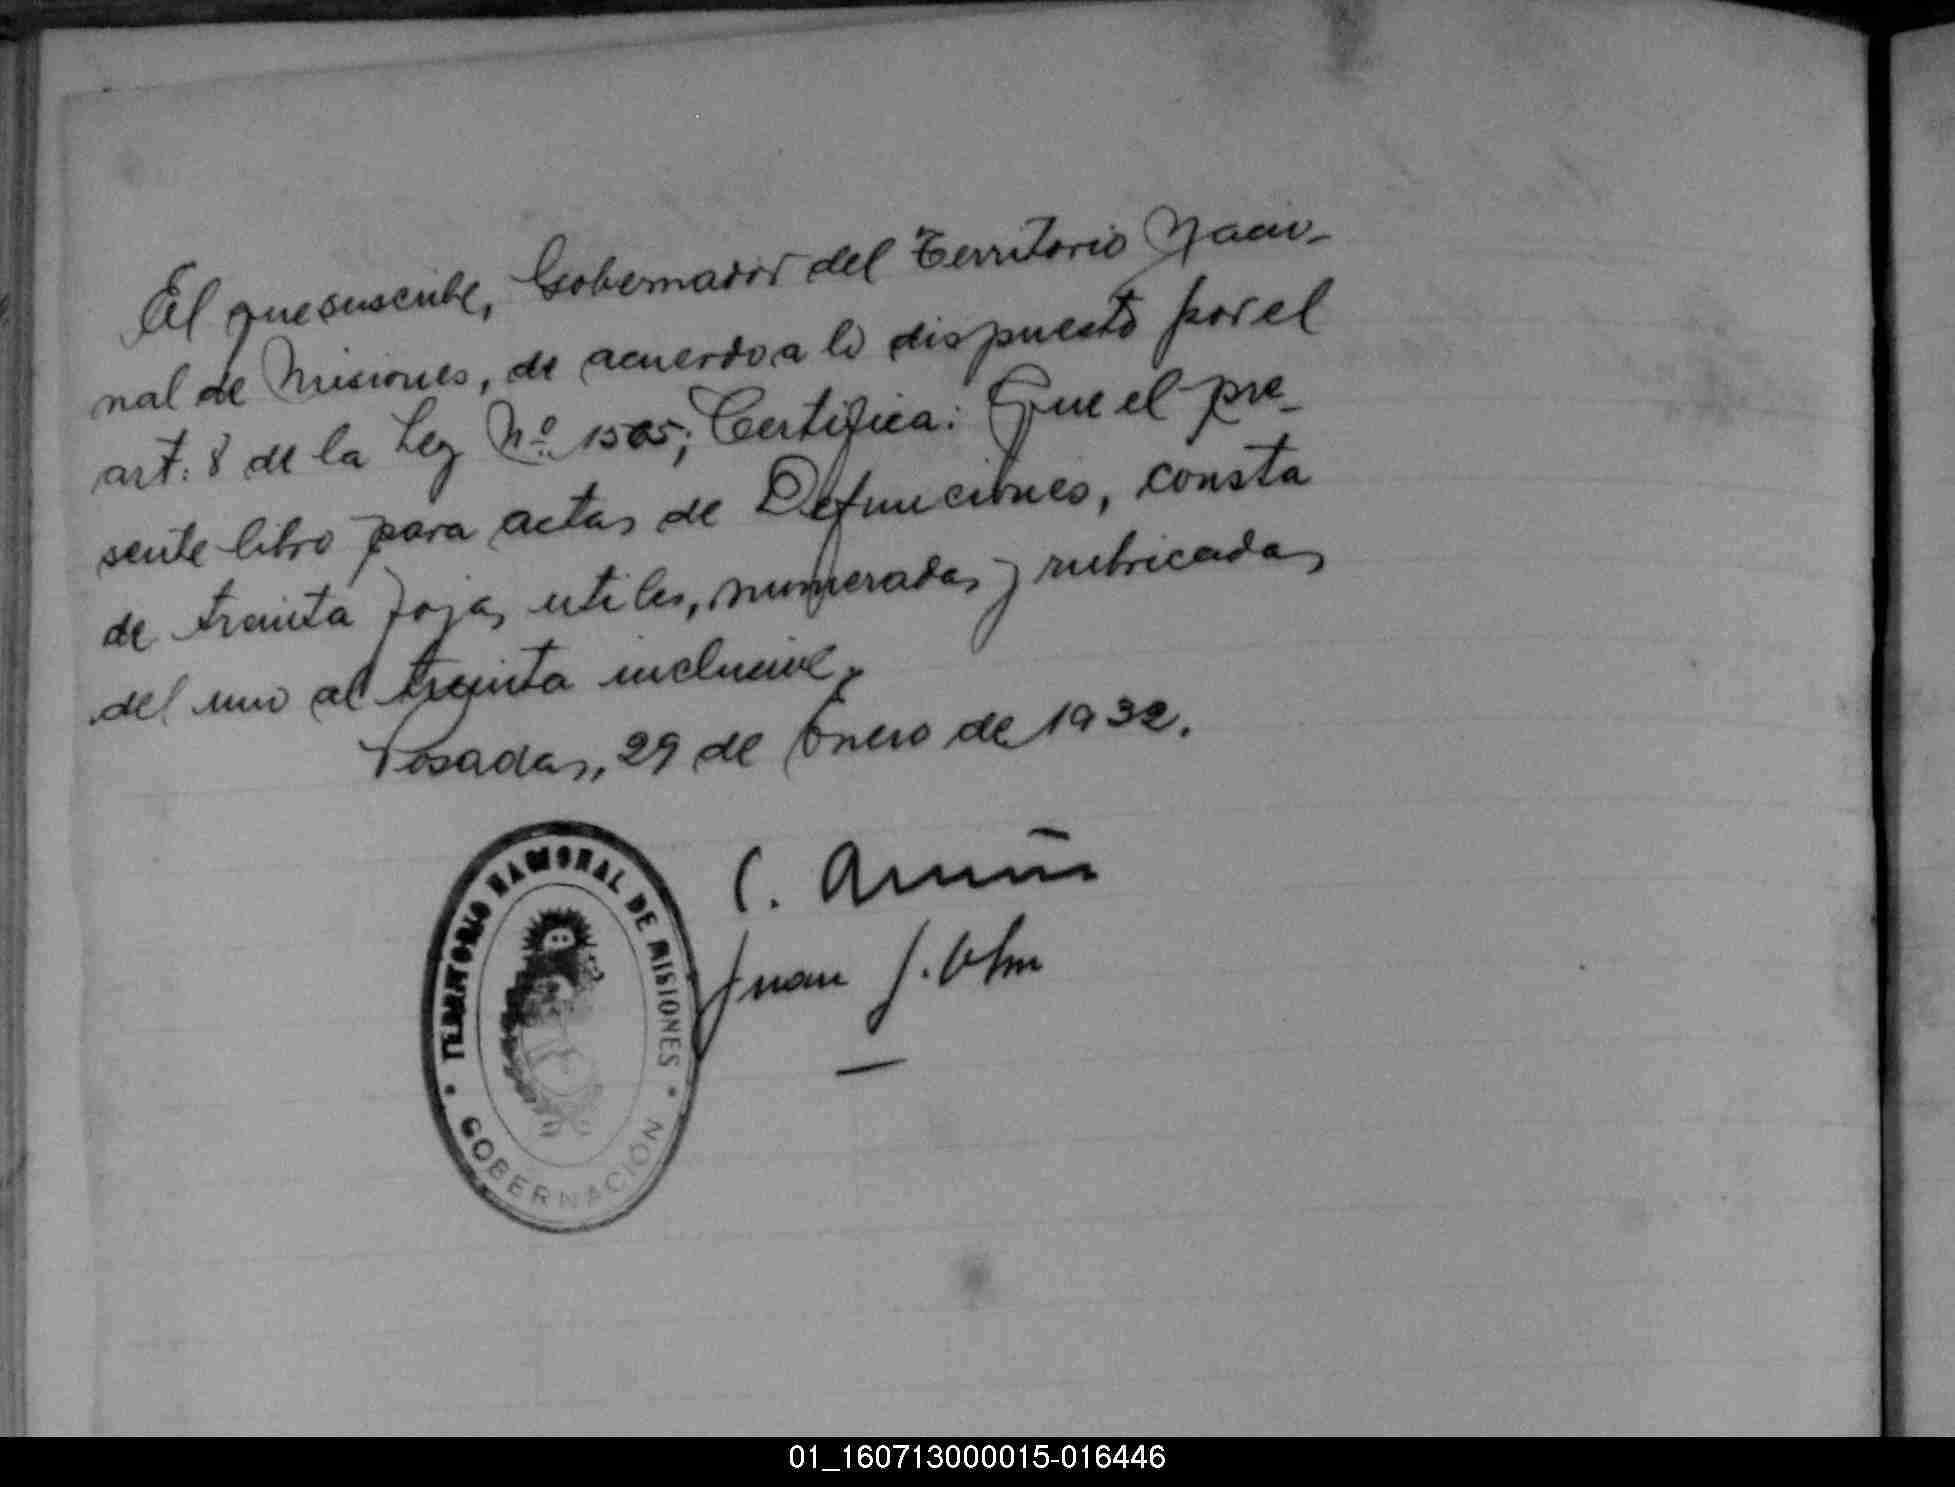 El que suscribe, Gobernador del Territorio Nacio-
nal de Misiones, de acuerdo a lo dispuesto por el
art: 8 de la Ley Nº 1565; Certifica: Que el pre-
sente libro para actas de Defunciones, consta
de treinta fojas utiles, numeradas y rubricadas
del uno al treinta inclusive.
Posadas, 29 de Enero de 1932.
C. Acuña
Juan J.
TERRITORIO NACIONAL DE MISIONES
GOBERNACIÓN
01_160713000015-016446